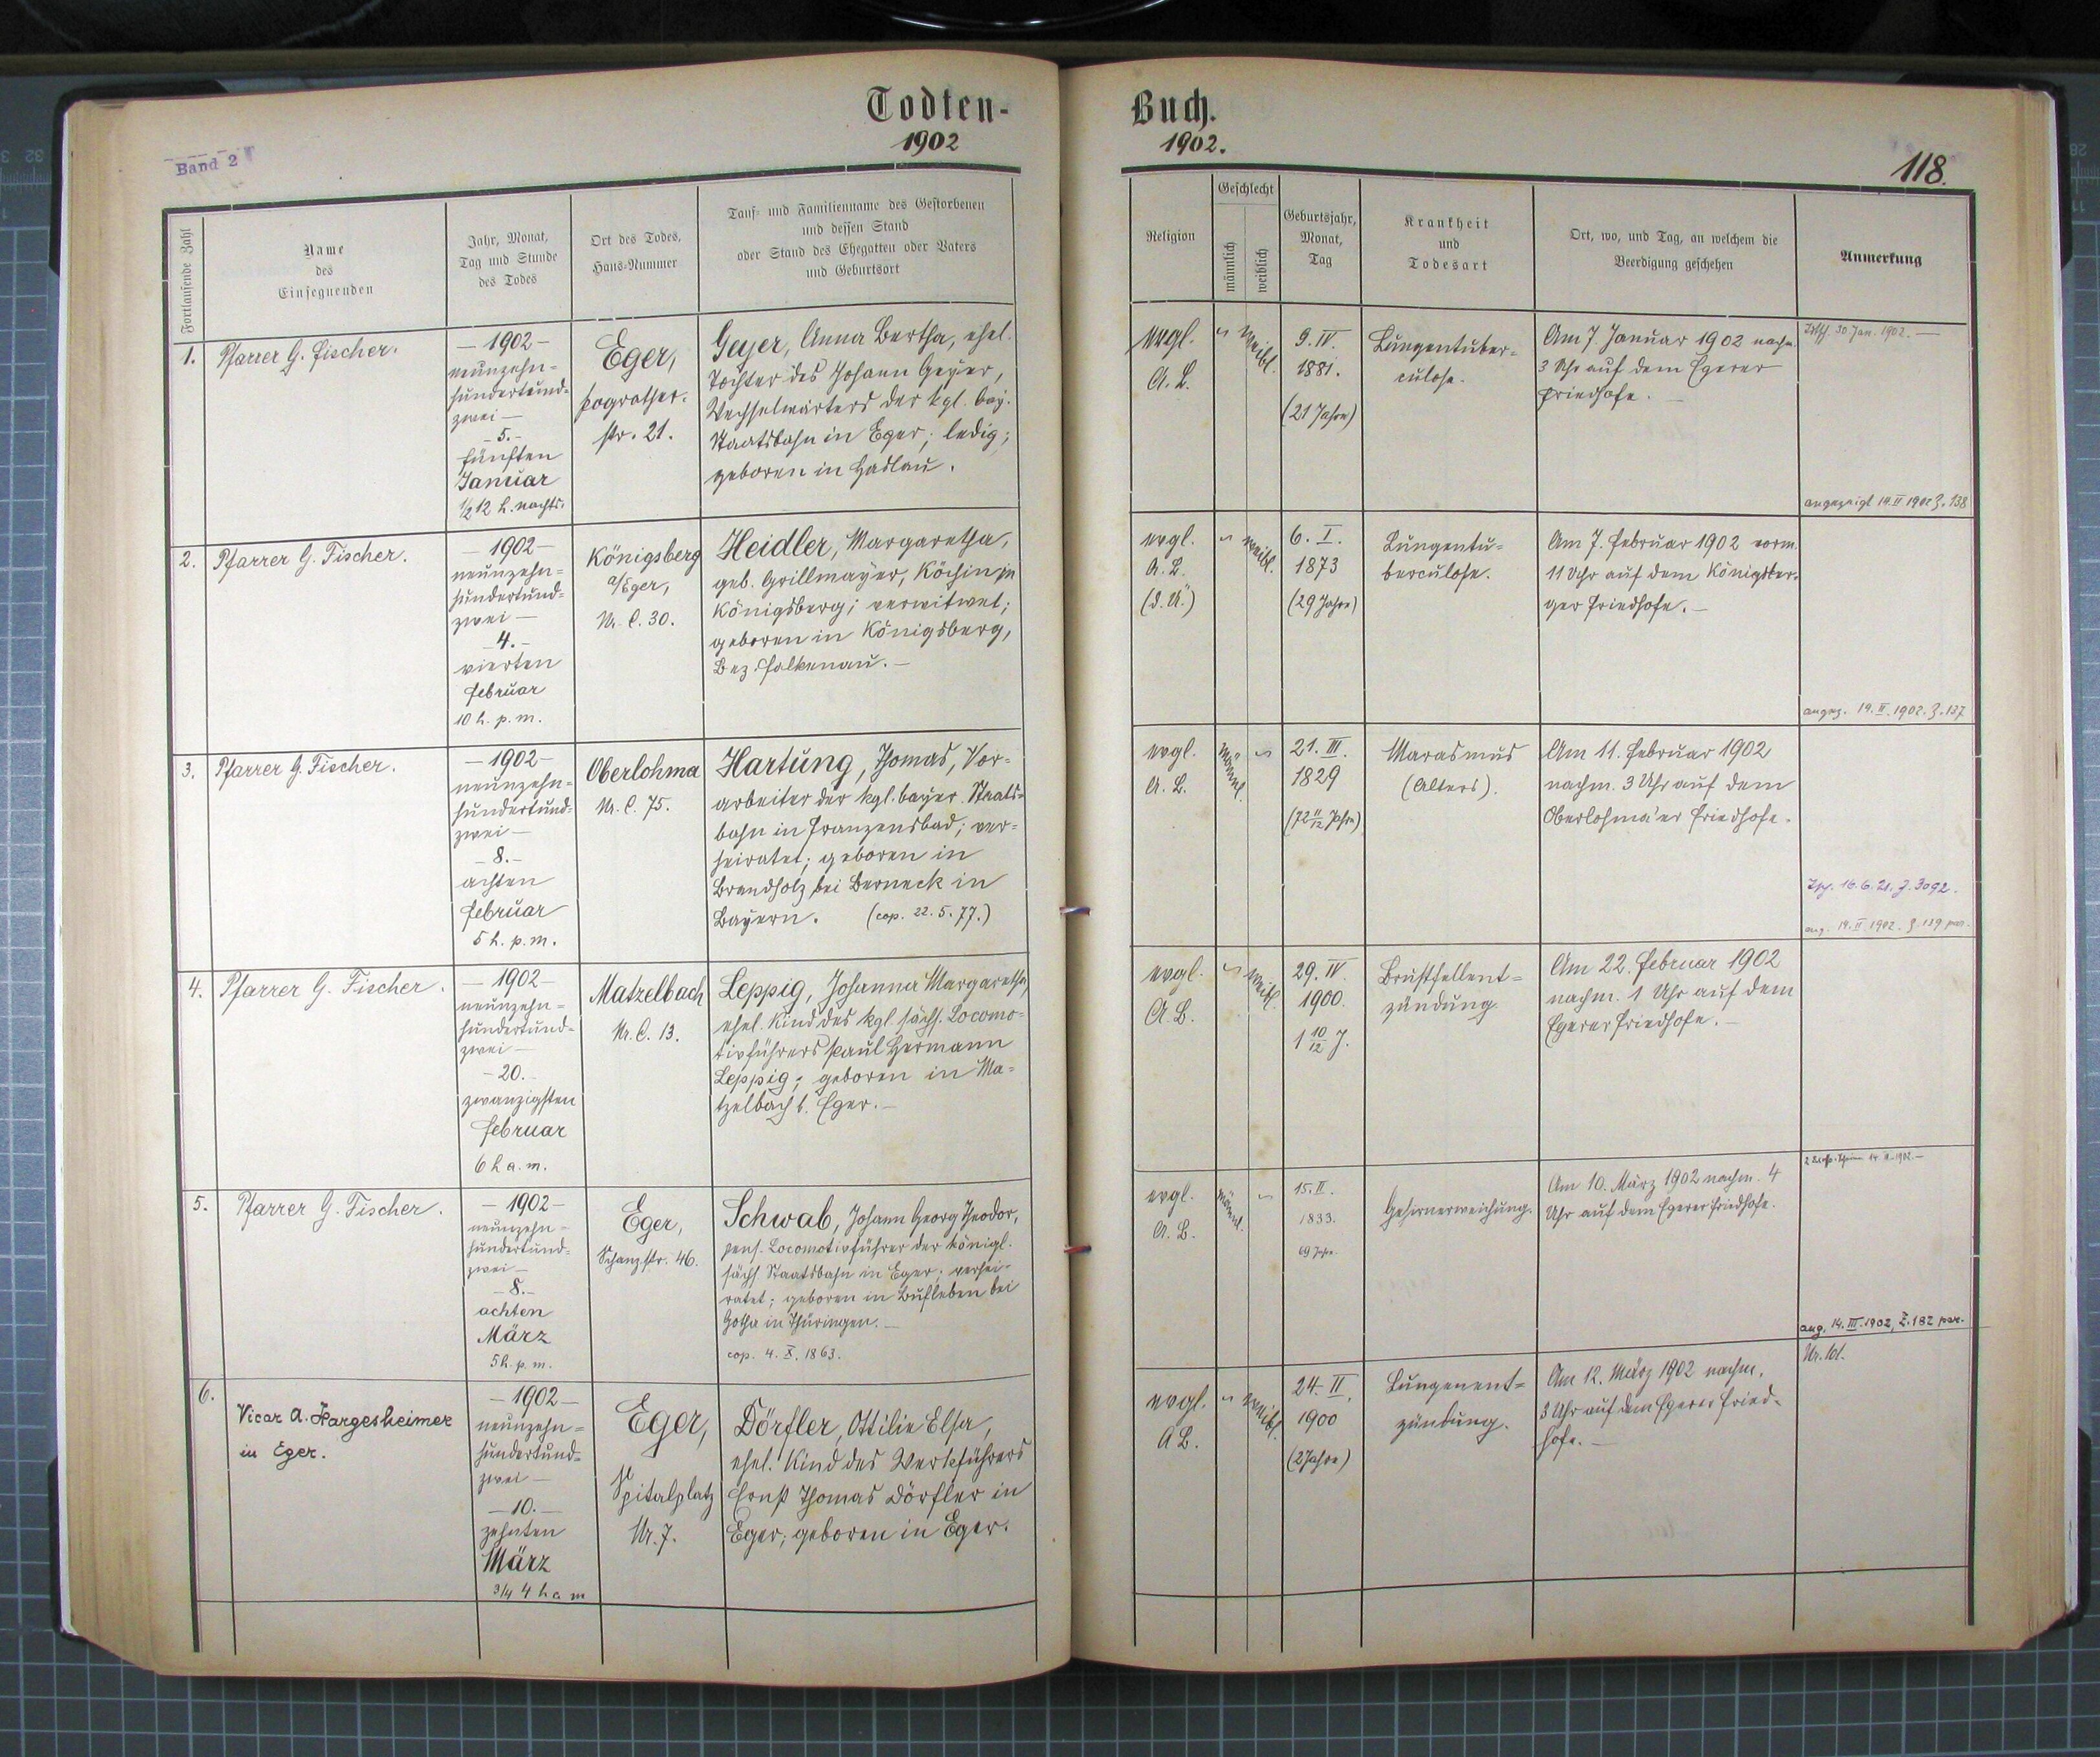 Todten-
1902
Band 2
Fortlaufende Zahl
Name
des
Einsegnenden
Jahr, Monat,
Tag und Stunde
des Todes
Ort des Todes,
Haus-Nummer
Tauf- und Familienname des Gestorbenen
und dessen Stand
oder Stand des Ehegatten oder Vaters
und Geburtsort
1.
Pfarrer G. Fischer.
– 1902 –
neunzehn-
hundertund-
zwei –
– 5. –
fünften
Januar
½ 12 h. nachts.
Eger,
Pograther-
str. 21.
Geyer, Anna Bertha, ehel.
Tochter des Johann Geyer,
Wechselwärters der kgl. bay.
Staatsbahn in Eger; ledig;
geboren in Haslau.
2.
Pfarrer G. Fischer.
– 1902 –
neunzehn-
hundertund-
zwei –
– 4. –
vierten
Februar
10 h. p. m.
Königsberg
a/Eger,
Nr. C. 30.
Heidler, Margaretha,
geb. Grillmayer, Köchin in
Königsberg; verwitwet;
geboren in Königsberg,
Bez. Falkenau. –
3.
Pfarrer G. Fischer.
– 1902 –
neunzehn-
hundertund-
zwei –
– 8. –
achten
Februar
5 h. p. m.
Oberlohma
Nr. C. 75.
Hartung, Thomas, Vor-
arbeiter der kgl. bayer. Staats-
bahn in Franzensbad; ver-
heiratet; geboren in
Brandholz bei Berneck in
Bayern. (cop. 22. 5. 77.)
4.
Pfarrer G. Fischer.
– 1902 –
neunzehn-
hundertund-
zwei –
– 20. –
zwanzigsten
Februar
6 h a. m.
Matzelbach
Nr. C. 13.
Leppig, Johanna Margaretha,
ehel. Kind des kgl. sächs. Locomo-
tivführers Paul Hermann
Leppig; geboren in Ma-
tzelbach b. Eger. –
5.
Pfarrer G. Fischer.
– 1902 –
neunzehn-
hundertund-
zwei –
– 8. –
achten
März
5 h. p. m.
Eger,
Schanzstr. 46.
Schwab, Johann Georg Theodor,
pens. Locomotivführer der königl.
sächs. Staatsbahn in Eger; verhei-
ratet; geboren in Bufleben bei
Gotha in Thüringen. –
cop. 4. X. 1863.
6.
Vicar A. Hargesheimer
in Eger.
– 1902 –
neunzehn-
hundertund-
zwei –
– 10. –
zehnten
März
3/4 4 h a m
Eger,
Spitalplatz
Nr. 7.
Dörfler, Ottilie Elsa,
ehel. Kind des Werkführers
Ernst Thomas Dörfler in
Eger; geboren in Eger.
Buch.
1902.
118.
Religion
Geschlecht
männlich
weiblich
Geburtsjahr,
Monat,
Tag
Krankheit
und
Todesart
Ort, wo, und Tag, an welchem die
Beerdigung geschehen
Anmerkung
evgl.
A. B.
weibl.
9. IV.
1881.
(21 Jahre)
Lungentuber-
culose.
Am 7. Januar 1902 nachm.
3 Uhr auf dem Egerer
Friedhofe. –
30. Jan. 1902. –
angezeigt 14. II 1902 Z. 138
evgl.
A. B.
(d. Ü.)
weibl.
6. I.
1873
(29 Jahre)
Lungentu-
berculose.
Am 7. Februar 1902 vorm.
11 Uhr auf dem Königsber-
ger Friedhofe. –
angez. 14. II. 1902. Z. 137
evgl.
A. B.
männl.
21. III.
1829
(72 11/12 Jahre)
Marasmus
(Alters).
Am 11. Februar 1902
nachm. 3 Uhr auf dem
Oberlohma'er Friedhofe.
16. 6. 21. Z. 3092.
ang. 14. II. 1902. Z. 139 par.
evgl.
A. B.
weibl.
29. IV.
1900.
1 10/12 J.
Brustfellent-
zündung
Am 22. Februar 1902
nachm. 1 Uhr auf dem
Egerer Friedhofe. –
evgl.
A. B.
männl.
15. II.
1833.
69 Jahre
Gehirnerweichung.
Am 10. März 1902 nachm. 4
Uhr auf dem Egerer Friedhofe.
ang. 14. III. 1902, Z. 182 par.
evgl.
A B.
weibl.
24. II.
1900
(2 Jahre)
Lungenent-
zündung.
Am 12. März 1902 nachm.
3 Uhr auf dem Egerer Fried-
hofe. –